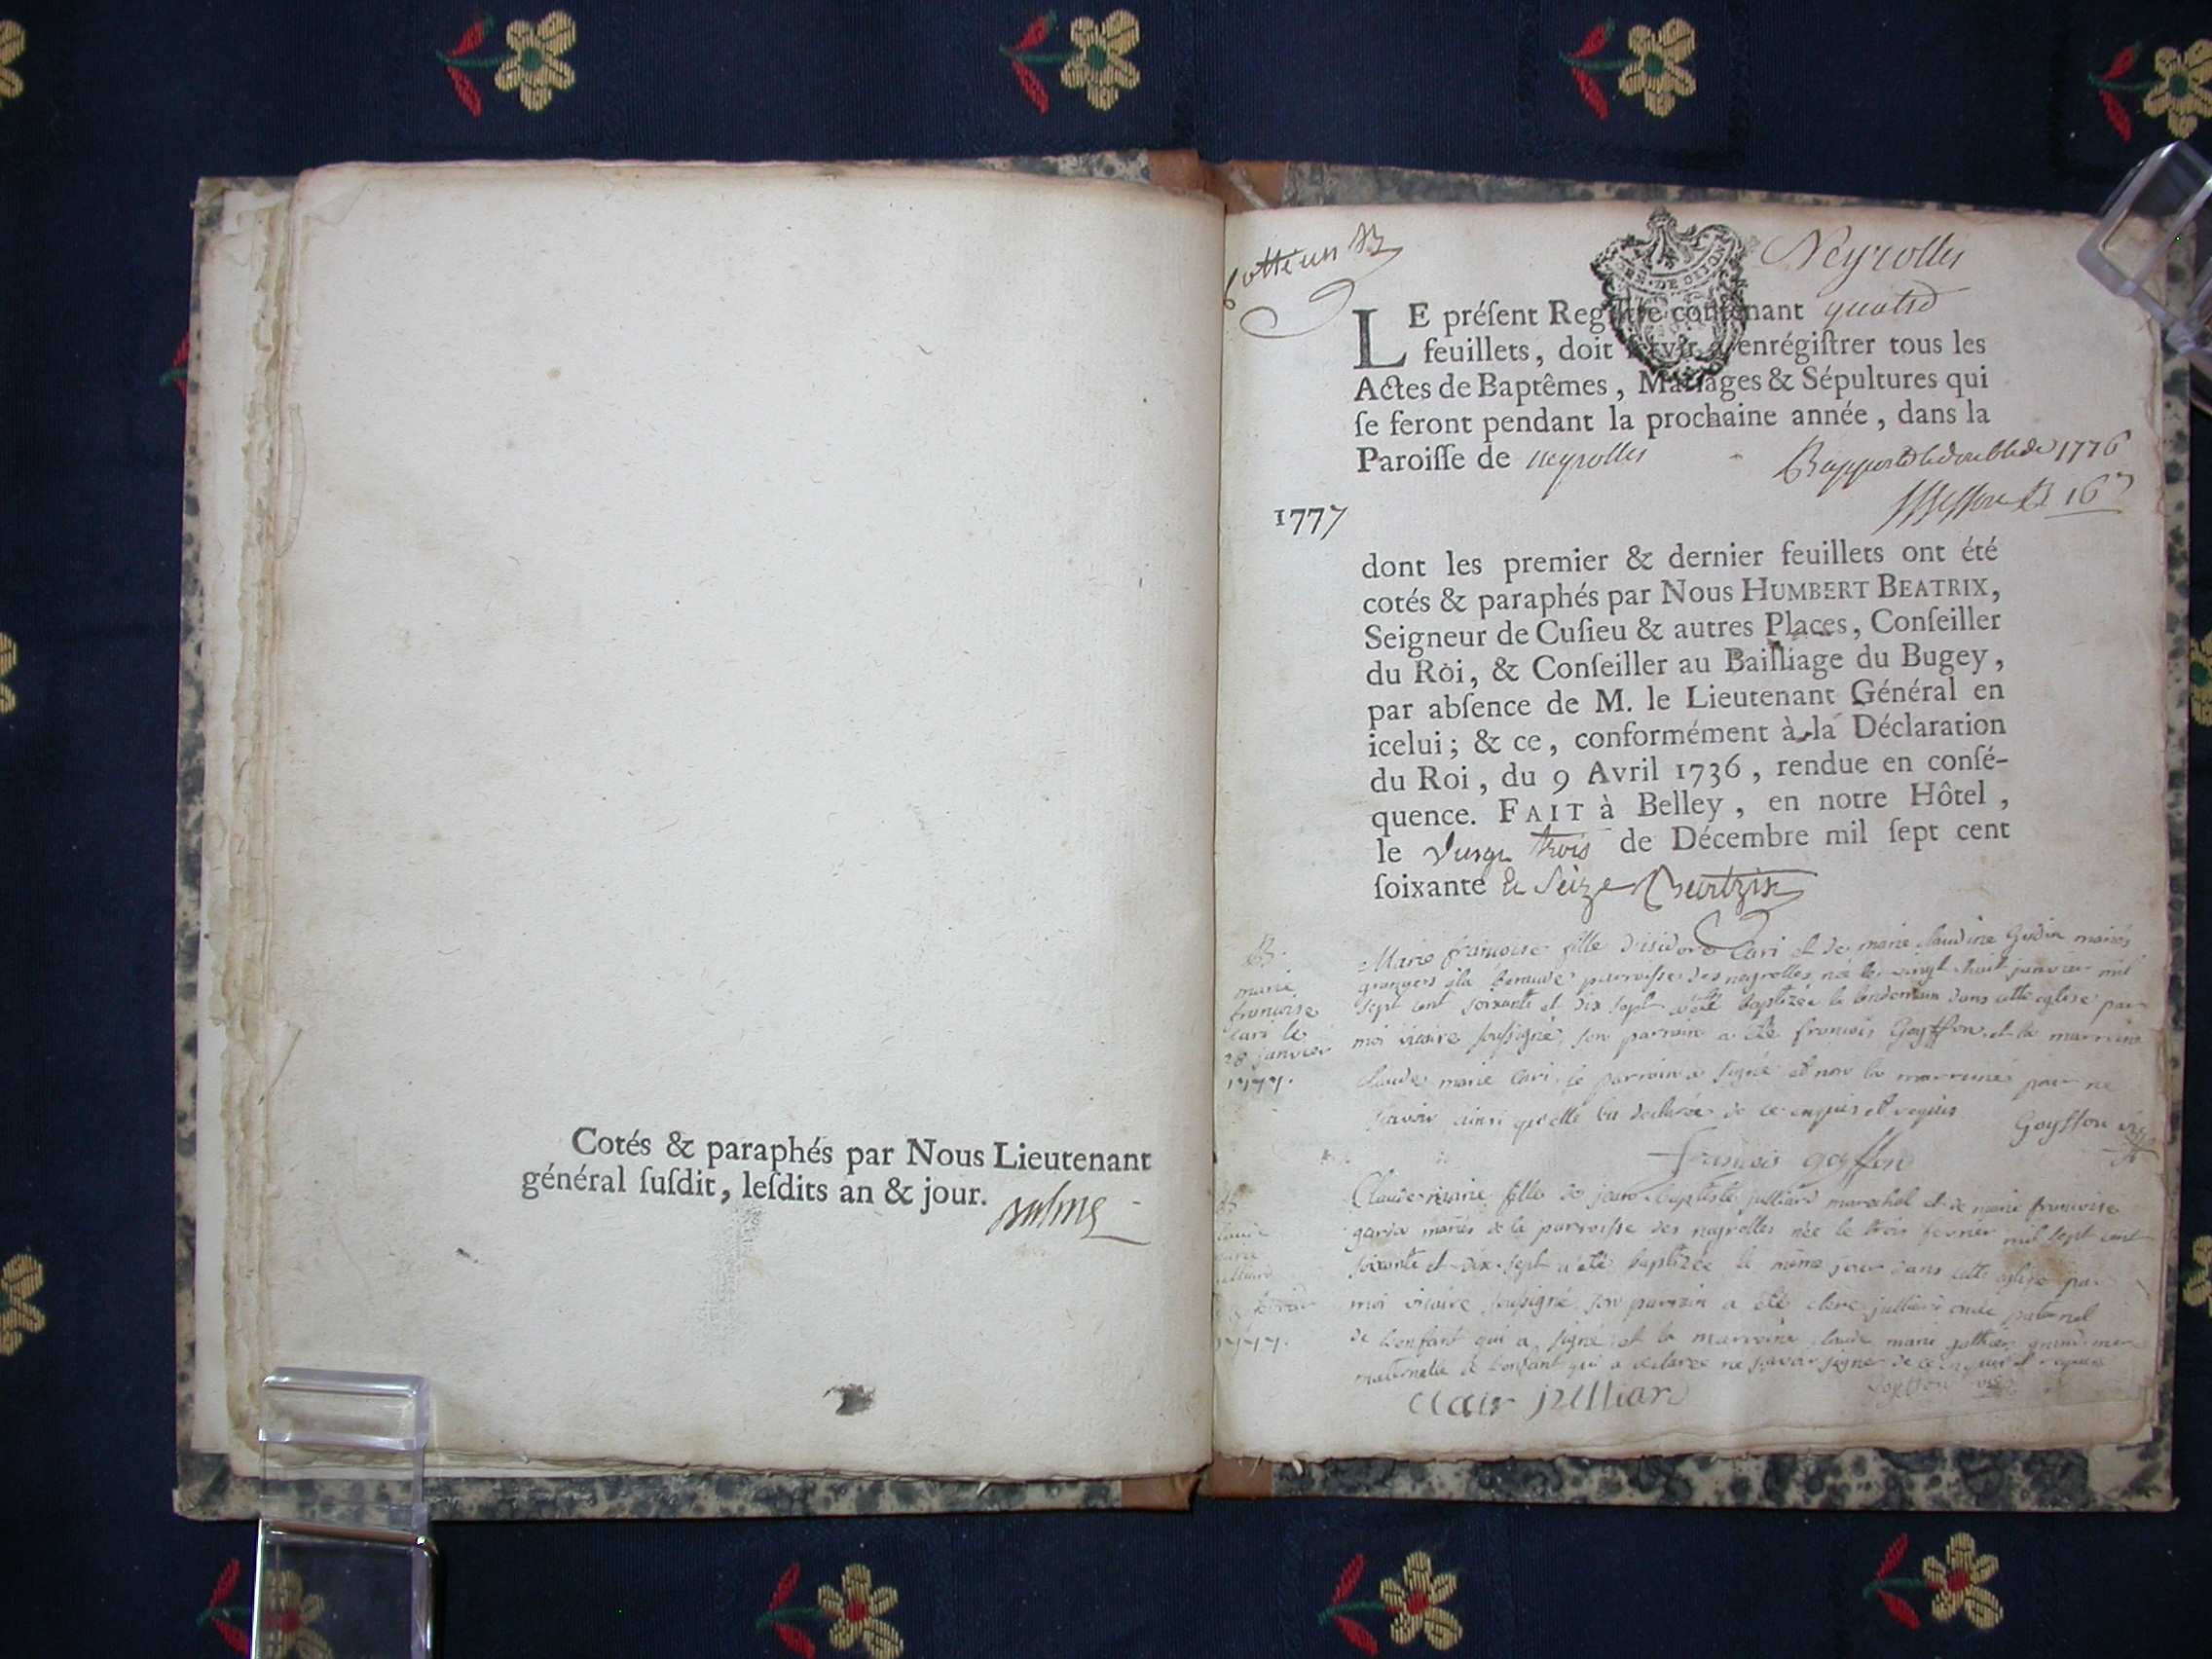 Cotés & paraphés par Nous Lieutenant
général ſuſdit, leſdits an & jour.
Neyrolles
LE préſent Regiſtre contenant quatre
feuillets, doit ſervir à enrégiſtrer tous les
Actes de Baptêmes, Mariages & Sépultures qui
ſe feront pendant la prochaine année, dans la
Paroiſſe de neyrolles
Rapporté le double de 1776
1777
dont les premier & dernier feuillets ont été
cotés & paraphés par Nous HUMBERT BEATRIX,
Seigneur de Cuſieu & autres Places, Conſeiller
du Roi, & Conſeiller au Bailliage du Bugey,
par abſence de M. le Lieutenant Général en
icelui; & ce, conformément à la Déclaration
du Roi, du 9 Avril 1736, rendue en conſé-
quence. FAIT à Belley, en notre Hôtel,
le vingt trois de Décembre mil ſept cent
ſoixante & Seize Beatrix
B.
marie
francoise
Cari le
28 janvier
1777.
Marie francoise fille d'isidore Cari et de marie claudine Godin mariés
grangers à la parroisse des neyrolles née le vingt huit janvier mil
sept cent soixante et dix sept a été baptizée le lendemain dans cette eglise par
moi vicaire soussigné, son parrain a été francois Goyffon et la marraine
claude marie Cari, le parrain a signé et non la marraine pour ne
savoir ainsi qu'elle l'a declarée de ce enquis et requis
Goyffon vic
francois goyffon
B
claude
marie
julliard
3 fevrier
1777.
Claude marie fille de jean baptiste julliard marechal et de marie francoise
mariés de la parroisse des neyrolles née le trois fevrier mil sept cent
soixante et dix sept a été baptizée le même jour dans cette eglise par
moi vicaire soussigné son parrain a été clere julliard oncle paternel
de l'enfant qui a signé et la marraine claude marie grand mere
maternelle de l'enfant qui a declaree ne savoir signer de ce enquis et requise
Goyffon vic
clair julliard